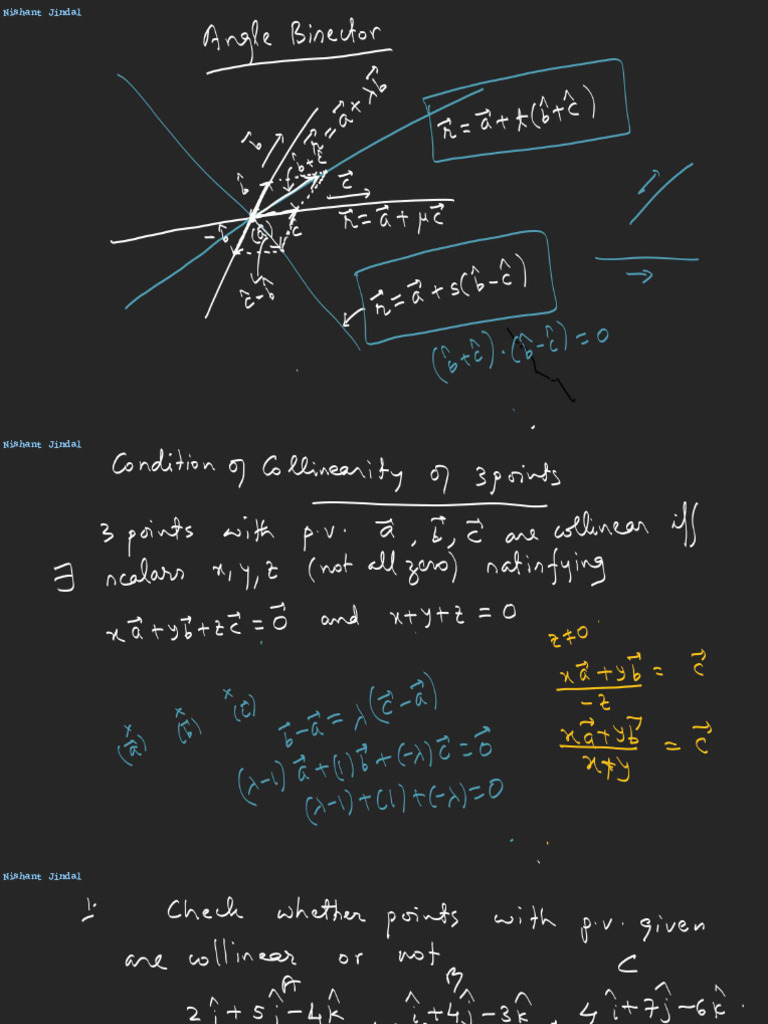 Nishant Jindal
Angle Bisector
r⃗ = a⃗ + λb⃗
r⃗ = a⃗ + t(b̂ + ĉ)
b⃗
b̂
b̂+ĉ
c⃗
ĉ
r⃗ = a⃗ + μc⃗
-b̂
(a⃗)
ĉ-b̂
r⃗ = a⃗ + s(b̂ - ĉ)
(b̂+ĉ)·(b̂-ĉ) = 0
Nishant Jindal
Condition of Collinearity of 3 points
3 points with p.v. a⃗, b⃗, c⃗ are collinear iff
∃ scalars x, y, z (not all zero) satisfying
xa⃗ + yb⃗ + zc⃗ = 0⃗ and x+y+z = 0
z≠0
xa⃗ + yb⃗ / -z = c⃗
xa⃗ + yb⃗ / x+y = c⃗
(a⃗) (b⃗) (c⃗)
b⃗ - a⃗ = λ(c⃗ - a⃗)
(λ-1)a⃗ + (1)b⃗ + (-λ)c⃗ = 0⃗
(λ-1) + (1) + (-λ) = 0
Nishant Jindal
1. Check whether points with p.v. given
are collinear or not
A B C
2î + 5ĵ - 4k̂, î + 4ĵ - 3k̂, 4î + 7ĵ - 6k̂.